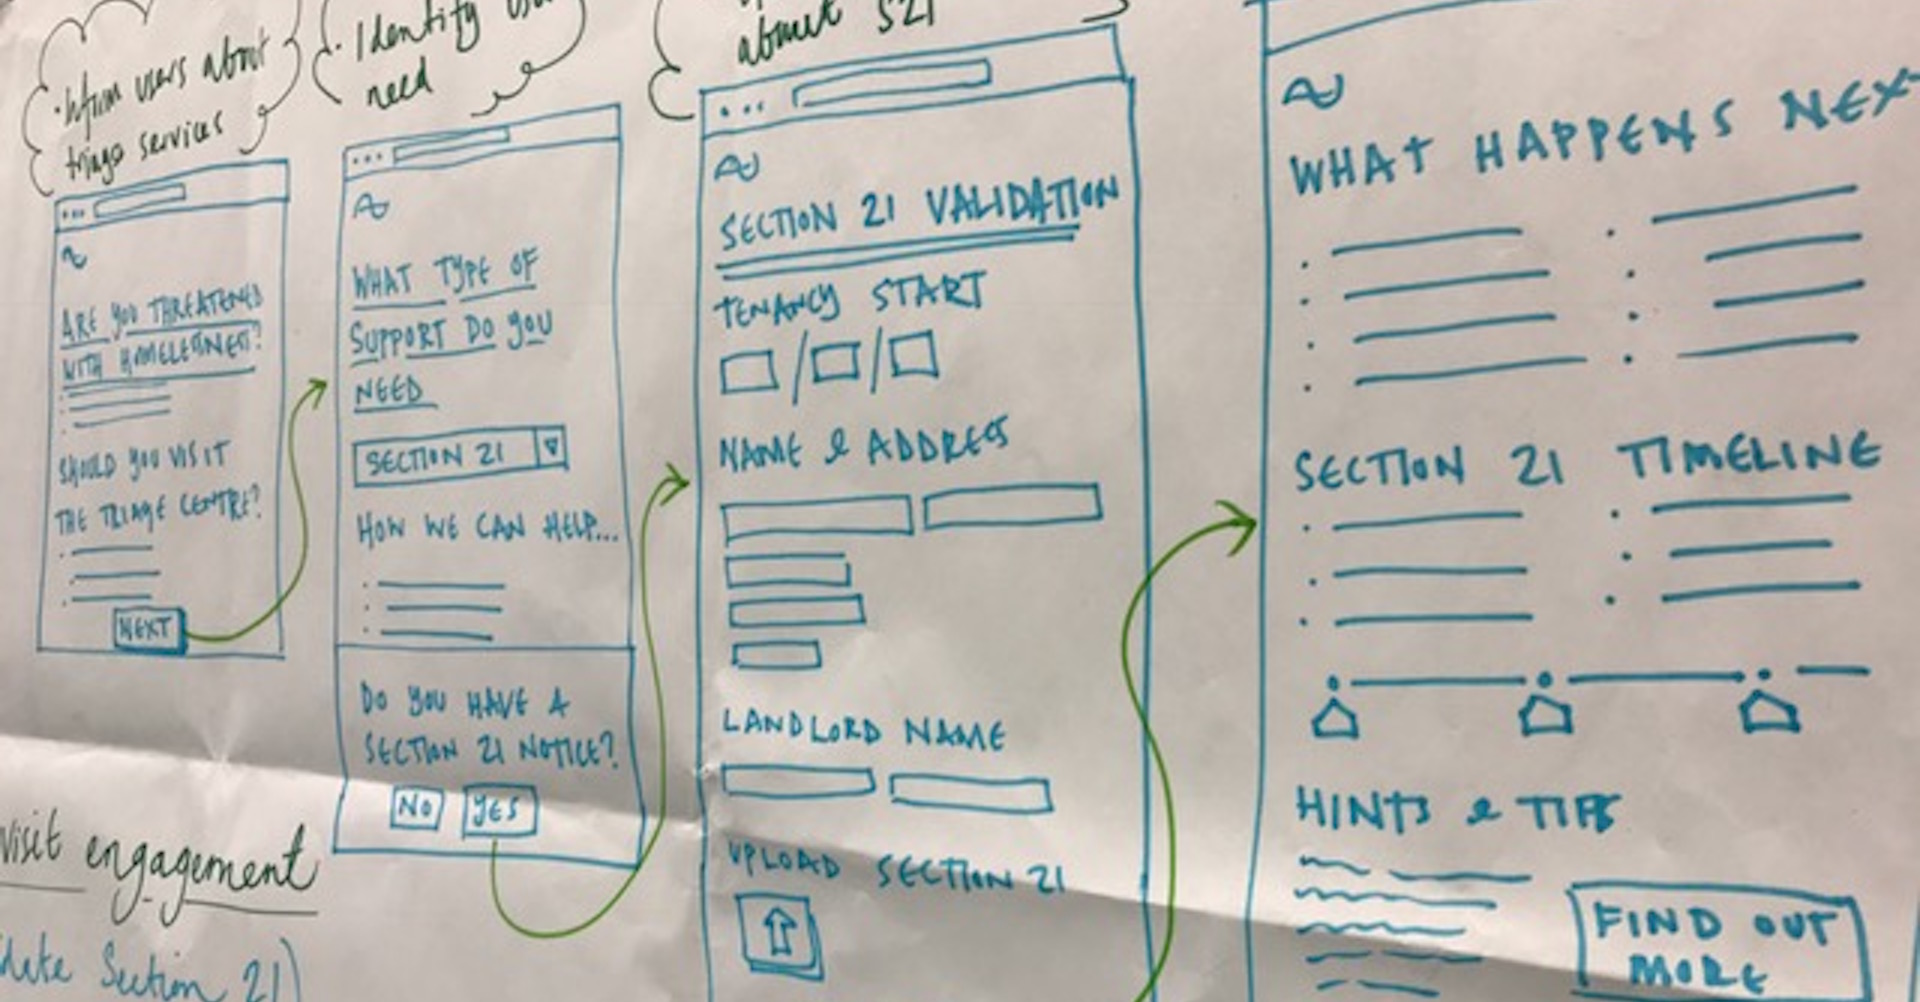 · Inform users about
triage services
· Identify
need
about S21
ARE YOU THREATENED
WITH HOMELESSNESS?
SHOULD YOU VISIT
THE TRIAGE CENTRE?
NEXT
WHAT TYPE OF
SUPPORT DO YOU
NEED
SECTION 21
HOW WE CAN HELP...
DO YOU HAVE A
SECTION 21 NOTICE?
NO YES
SECTION 21 VALIDATION
TENANCY START
/ /
NAME & ADDRESS
LANDLORD NAME
UPLOAD SECTION 21
WHAT HAPPENS NEX
SECTION 21 TIMELINE
HINTS & TIPS
FIND OUT
MORE
visit engagement
Section 21)